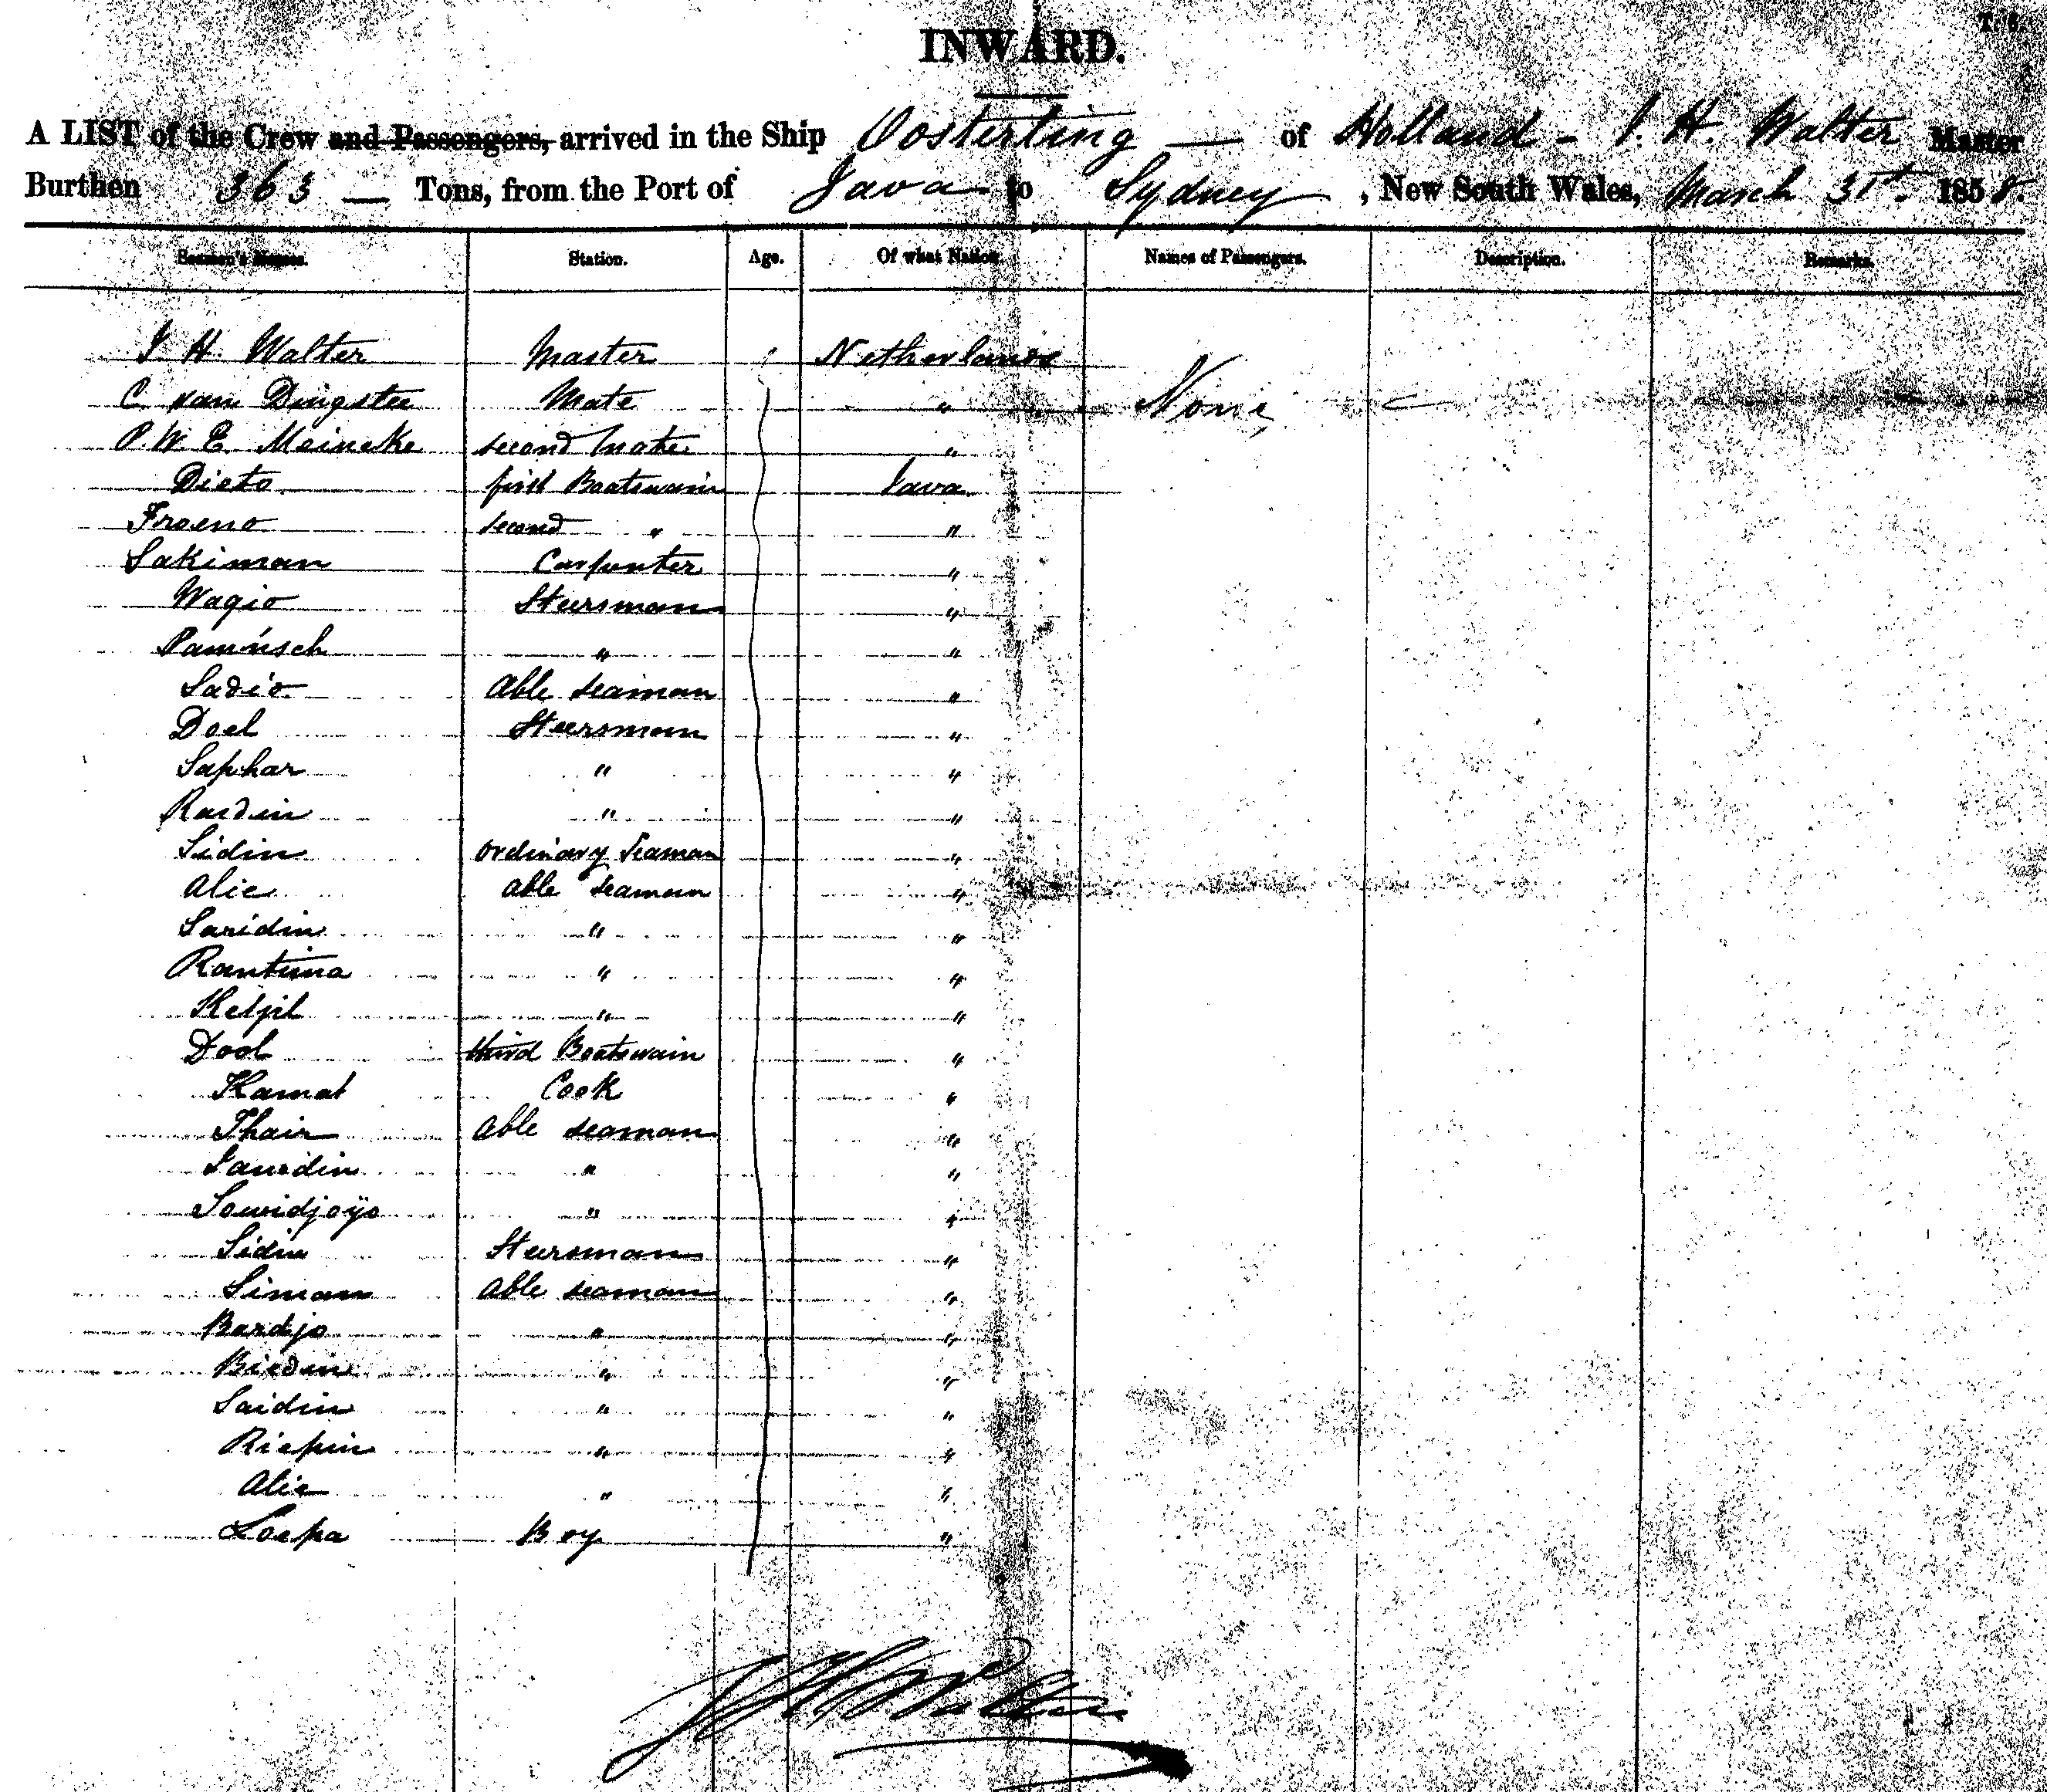 INWARD.
A LIST of the Crew and Passengers, arrived in the Ship Oosterling — of Holland - J. H. Walter Master
Burthen 363 — Tons, from the Port of Java to Sydney, New South Wales, March 31st. 1858.
Seamen's Names. Station. Age. Of what Nation. Names of Passengers. Description. Remarks.
J H Walter Master Netherlands
C van Dingstee Mate " None
P. W. E. Meineke second Mate "
Dieto first Boatswain Java
Froeno second " "
Sakiman Carpenter "
Wagio Steersman "
Pamùsch " "
Sadio able seaman "
Doel Steersman "
Saphar " "
Rasdin " "
Sidin ordinary seaman "
Alie able seaman "
Saridin " "
Rantima " "
Ketjil " "
Dool third Boatswain "
Kamat Cook "
Thair able seaman "
" "
Sowidjoyo " "
Sidin Steersman "
Siman able seaman "
Bardjo " "
Biedin " "
Saidin " "
Riepin " "
Alie " "
Soepa Boy "
J H Walter